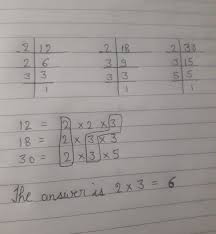 2 | 12   2 | 18   2 | 30
2 | 6   3 | 9   3 | 15
3 | 3   3 | 3   5 | 5
1   1   1
12 = 2 × 2 × 3
18 = 2 × 3 × 3
30 = 2 × 3 × 5
The answer is 2 × 3 = 6